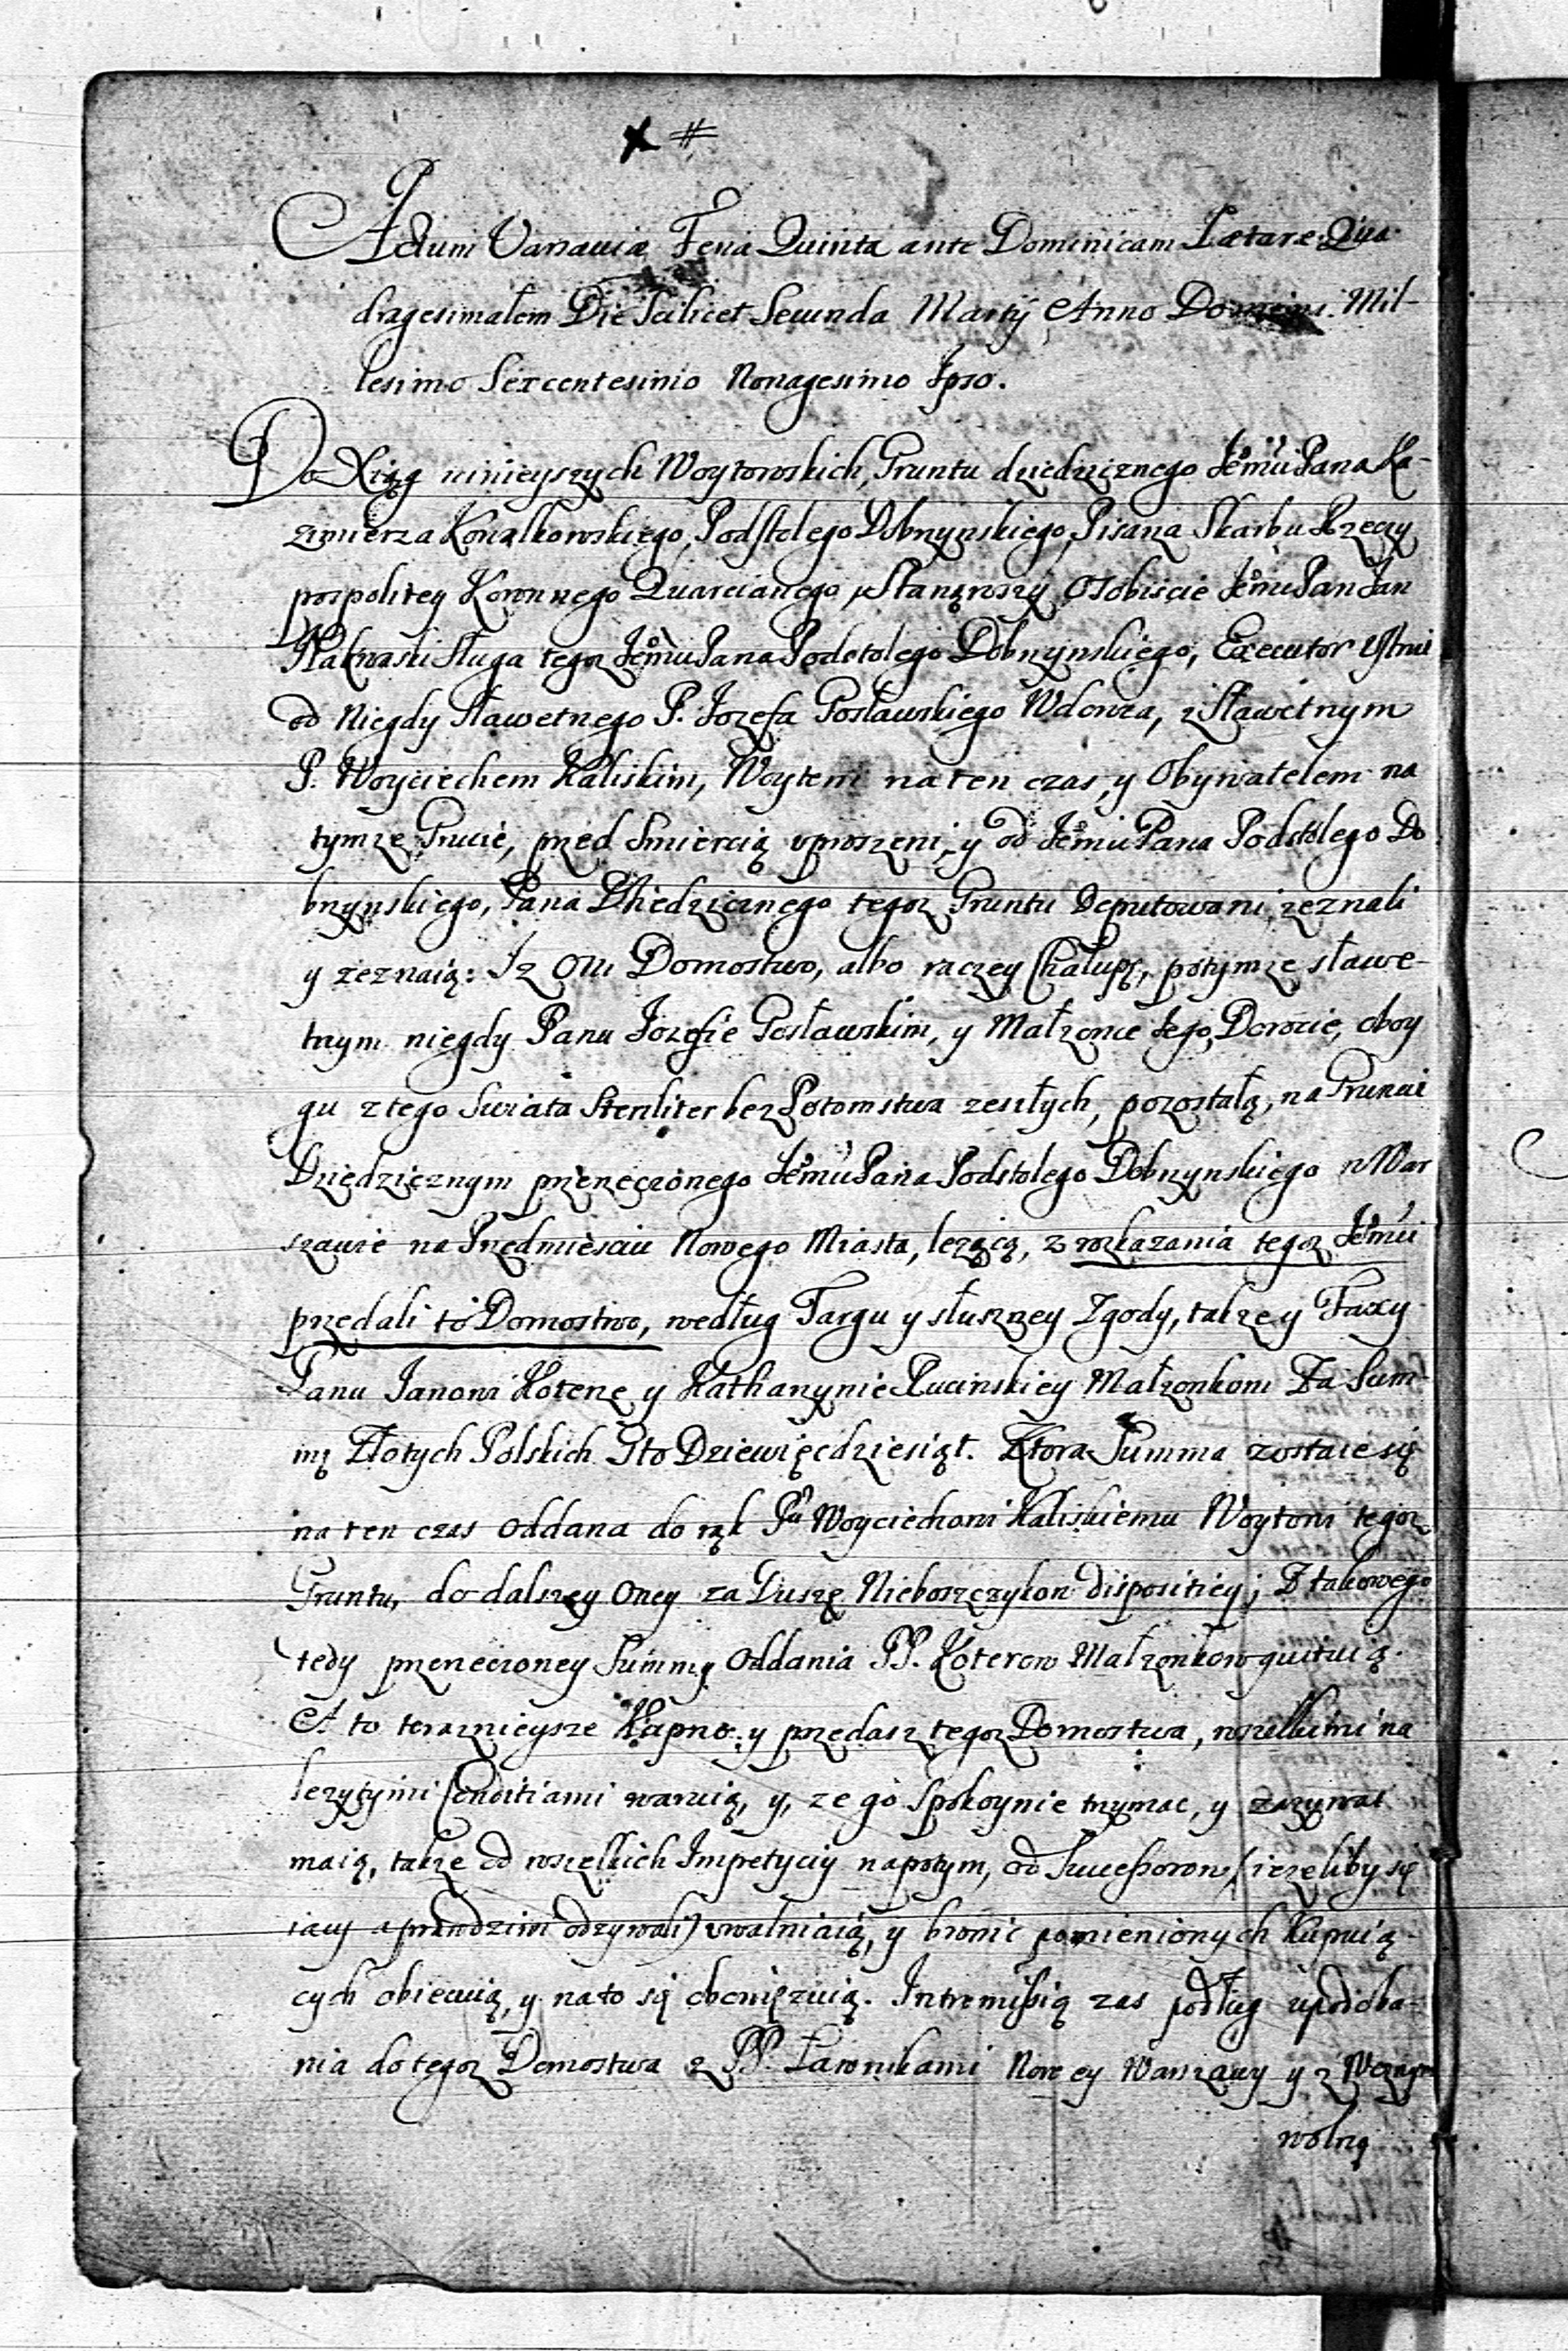 Actum Varsaviæ Feria Quinta ante Dominicam Lætare Qua-
dragesimalem Die Scilicet Secunda Martij Anno Domini Mil-
lesimo Sexcentesimo Nonagesimo Ipso.
Do Xiąg ninieyszych Woytowskich, Gruntu dziedzicznego Jemu Pana Ka-
zimierza Kowalkowskiego, Podstolego Dobrzynskiego, Pisarza Skarbu Rzeczy
pospolitey Koronnego Quarcianego, Stanąwszy Osobiscie Jemu Pan Jan
sługa tegoz Jemu Pana Podstolego Dobrzynskiego, Executor
od Niegdy Sławetnego P. Jozefa Gosławskiego Wdowca, z Sławetnym
P. Woyciechem Kaliskim, Woytem na ten czas, y Obywatelem na
tymze Grucie, przed Smiercią uproszeni, y od Jemu Pana Podstolego Do
brzynskiego, Pana Dziedzicznego tegoz Gruntu Deputowani, zeznali
y zeznaią: Iz Oni Domostwo, albo raczey Chałupę, potymze sławe-
tnym niegdy Panu Jozefie Gosławskim, y Małzonce Jego, Dorocie, oboy
gu z tego Swiata Steriliter bez Potomstwa zeszłych, pozostałą, na Gruncie
Dziedzicznym przerzeczonego Jemu Pana Podstolego Dobrzynskiego w War
szawie na Przedmiesciu Nowego Miasta, lezącą, z rozkazania tegoz Jemu
przedali to Domostwo, według Targu y słuszney Zgody, takze y Taxy
Panu Janowi Koterze y Katharzynie Rucinskiey Małzonkom Za Sum-
mę Złotych Polskich Sto Dziewięcdziesiąt. Ktora Summa zostaie się
na ten czas oddana do rąk Pu Woyciechowi Kaliskiemu Woytowi tegoz
Gruntu, do dalszey Oney za Duszę Nieboszczykow dispositiey; Z takowego
tedy przerzeczoney Summy Oddania PP. Koterow Małzonkow quituią.
A to teraznieysze Kupno y przedasz tegoz Domostwa, wszelkimi na
lezytymi Conditiami waruią, y, ze go spokoynie trzymac, y zazywac
maią, takze od wszelkich Impetyciy napotym, od Successorow, (iezeliby się
iacy prawdziwi odzywali) uwalniaią, y bronic pomienionych Kupuią-
cych obiecuią, y na to się obowięzuią. Intromissią zas podług upodoba-
nia do tegoz Domostwa z PP. Ławnikami Nowey Warszawy y z
wolną